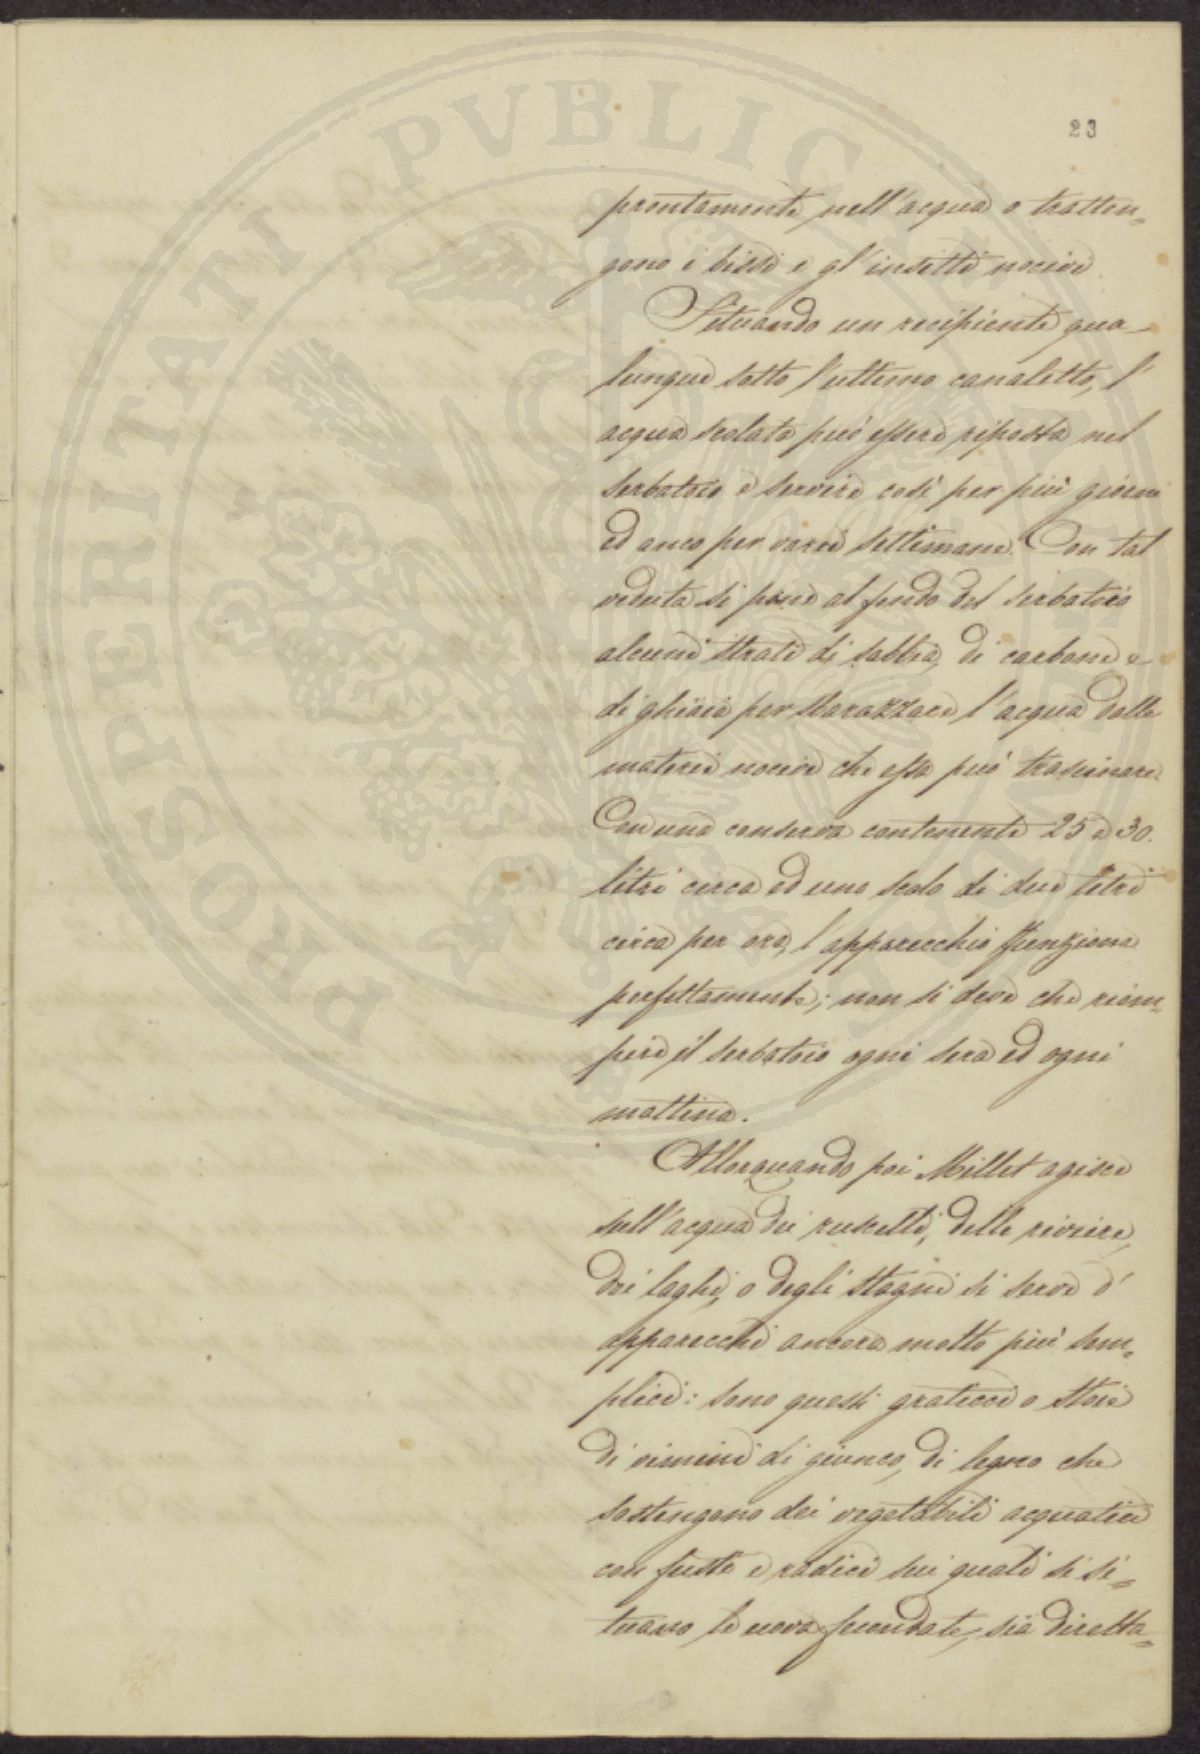 PROSPERITATI PUBLICAE
23
prontamente nell'acqua o tratten=
gono i bissi e gl'insetti nocivi
Situando un recipiente qua-
lunque sotto l'ultimo canaletto, l'
acqua scolata può essere riposta nel
serbatoio e servire così per più giorni
ed anco per varie settimane. Con tal
veduta si pone al fondo del serbatoio
alcuni strati di sabbia, di carbone e
di ghiaia per sbarazzare l'acqua dalle
materie nocive che essa può trascinare.
Con una conserva contenente 25 a 30.
litri circa ed uno scolo di due litri
circa per ora, l'apparecchio funziona
perfettamente; non si deve che riem=
pire il serbatoio ogni sera ed ogni
mattina.
Allorquando poi Millet agisce
sull'acqua dei ruscelli, delle riviere,
dei laghi, o degli stagni si serve d'
apparecchi ancora molto più sem=
plici: sono questi graticci o stoie
di vimini di giunco, di legno che
sostengono dei vegetabili acquatici
con fusti e radici sui quali si si=
tuano le uova fecondate, sia diretta=